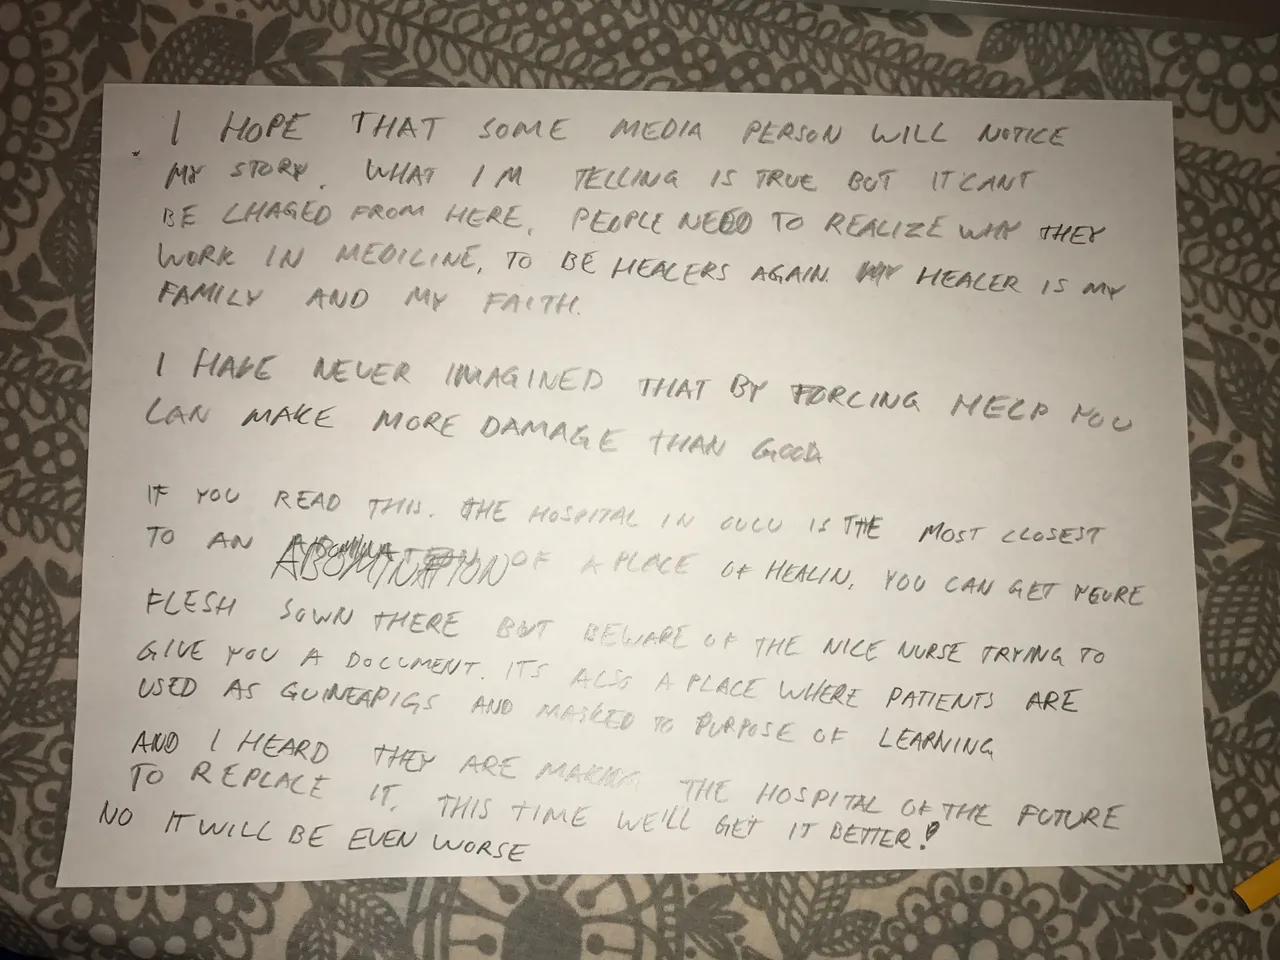 I HOPE THAT SOME MEDIA PERSON WILL NOTICE
MY STORY. WHAT I M TELLING IS TRUE BUT IT CANT
BE CHAGED FROM HERE. PEOPLE NEED TO REALIZE WHY THEY
WORK IN MEDICINE, TO BE HEALERS AGAIN. MY HEALER IS MY
FAMILY AND MY FAITH.
I HAVE NEVER IMAGINED THAT BY FORCING HELP YOU
CAN MAKE MORE DAMAGE THAN GOOD
IF YOU READ THIS. THE HOSPITAL IN OULU IS THE MOST CLOSEST
TO AN ABOMINATION OF A PLACE OF HEALIN, YOU CAN GET YEURE
FLESH SOWN THERE BUT BEWARE OF THE NICE NURSE TRYING TO
GIVE YOU A DOCUMENT. ITS ALSO A PLACE WHERE PATIENTS ARE
USED AS GUINEAPIGS AND MASKED TO PURPOSE OF LEARNING
AND I HEARD THEY ARE MAKING THE HOSPITAL OF THE FUTURE
TO REPLACE IT. THIS TIME WE'LL GET IT BETTER!
NO IT WILL BE EVEN WORSE